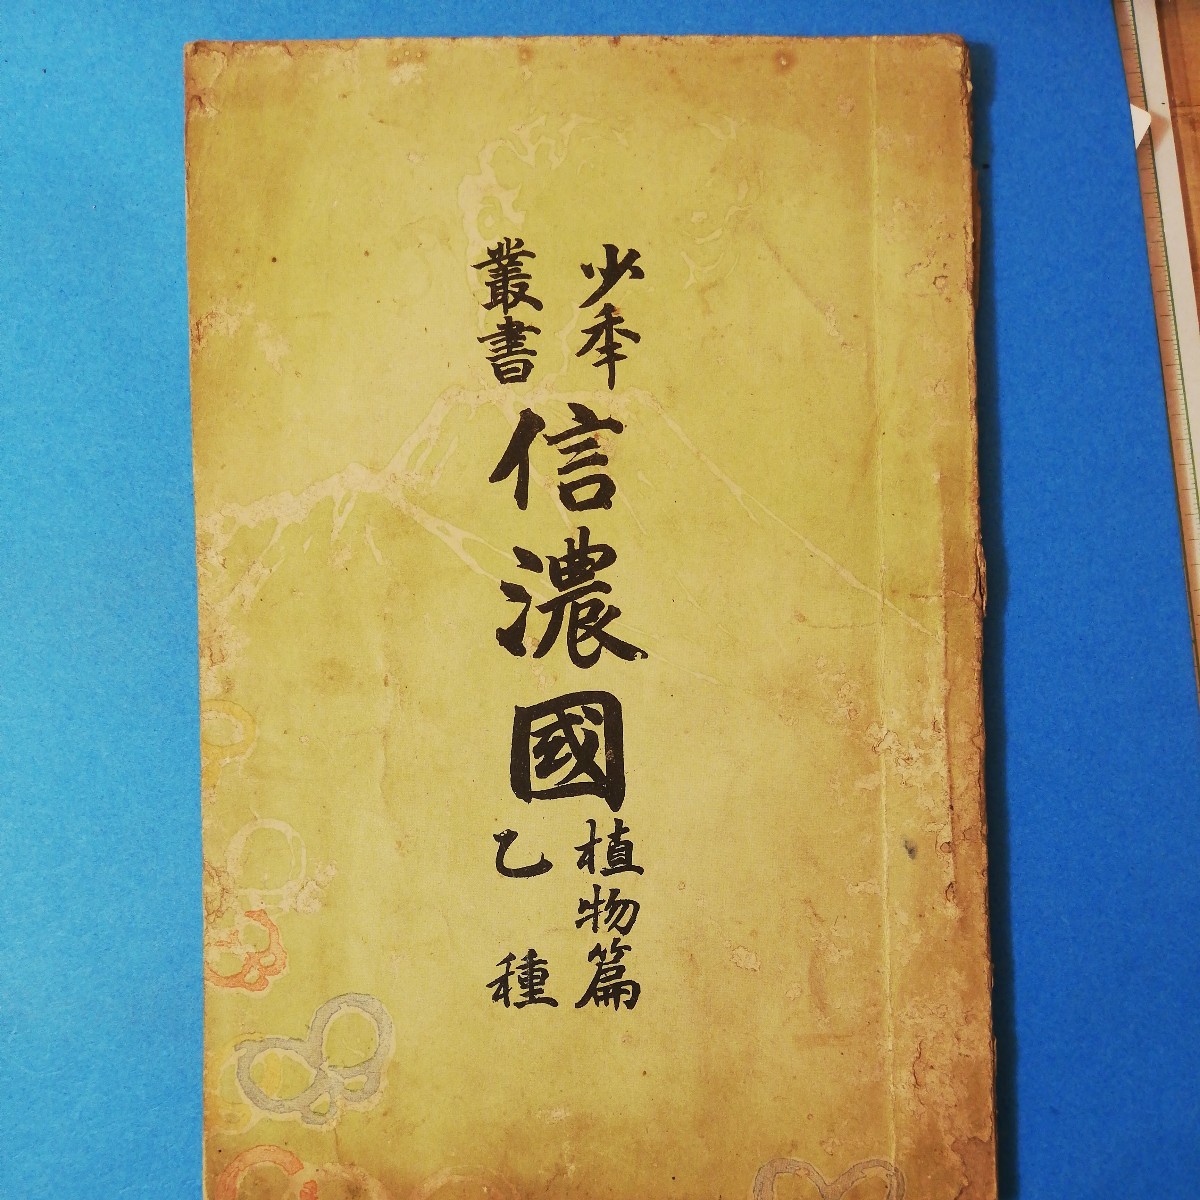 少年
叢書
信濃國
植物篇
乙種